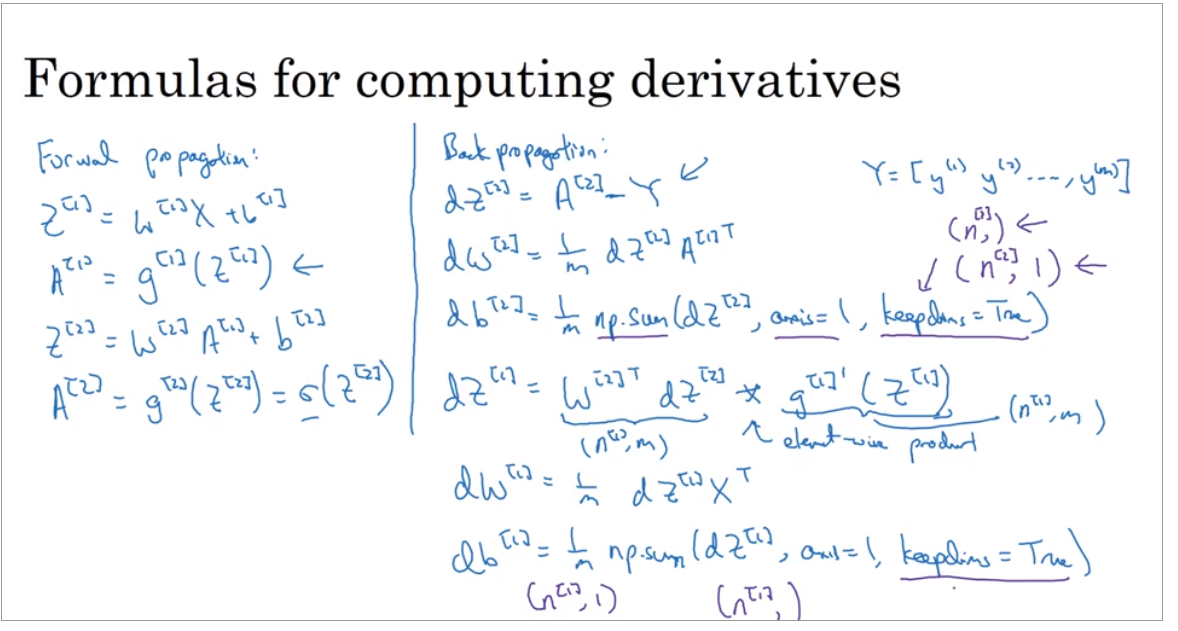 Formulas for computing derivatives
Forwal propagation:
Z^[1] = W^[1] X + b^[1]
A^[1] = g^[1](Z^[1]) ←
Z^[2] = W^[2] A^[1] + b^[2]
A^[2] = g^[2](Z^[2]) = σ(Z^[2])
Back propagation:
dZ^[2] = A^[2] - Y ↙
dW^[2] = 1/m dZ^[2] A^[1]T
db^[2] = 1/m np.sum(dZ^[2], axis=1, keepdims=True)
dZ^[1] = W^[2]T dZ^[2] * g^[1]'(Z^[1])
(n^[1], m) ↖ element-wise product (n^[1], m)
dW^[1] = 1/m dZ^[1] X^T
db^[1] = 1/m np.sum(dZ^[1], axis=1, keepdims=True)
(n^[1], 1) (n^[1],)
Y = [y^(1) y^(2) ..., y^(m)]
(n^[2],) ←
↙ (n^[2], 1) ←